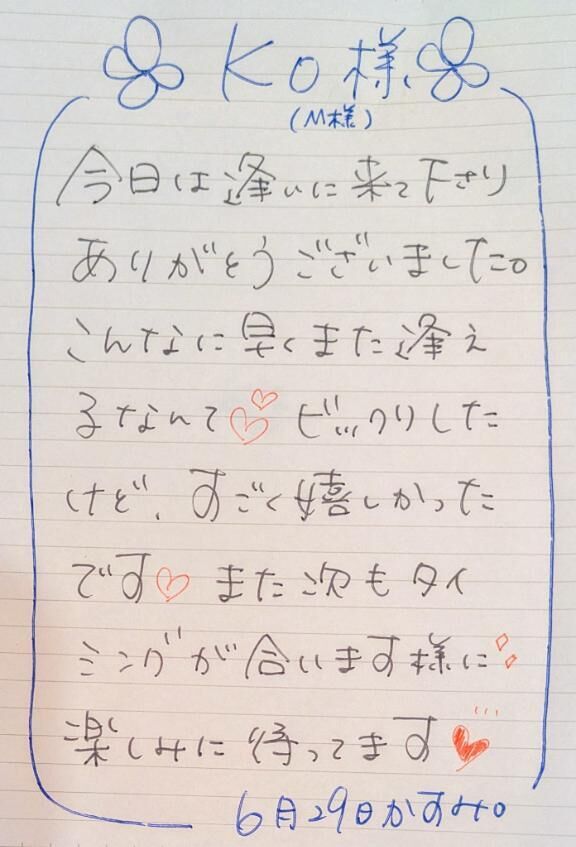 Ko様
(M様)
今日は逢いに来て下さり
ありがとうございました。
こんなに早くまた逢え
るなんて ビックリした
けど、すごく嬉しかった
です また次もタイ
ミングが合います様に
楽しみに待ってます
6月29日かすみ。